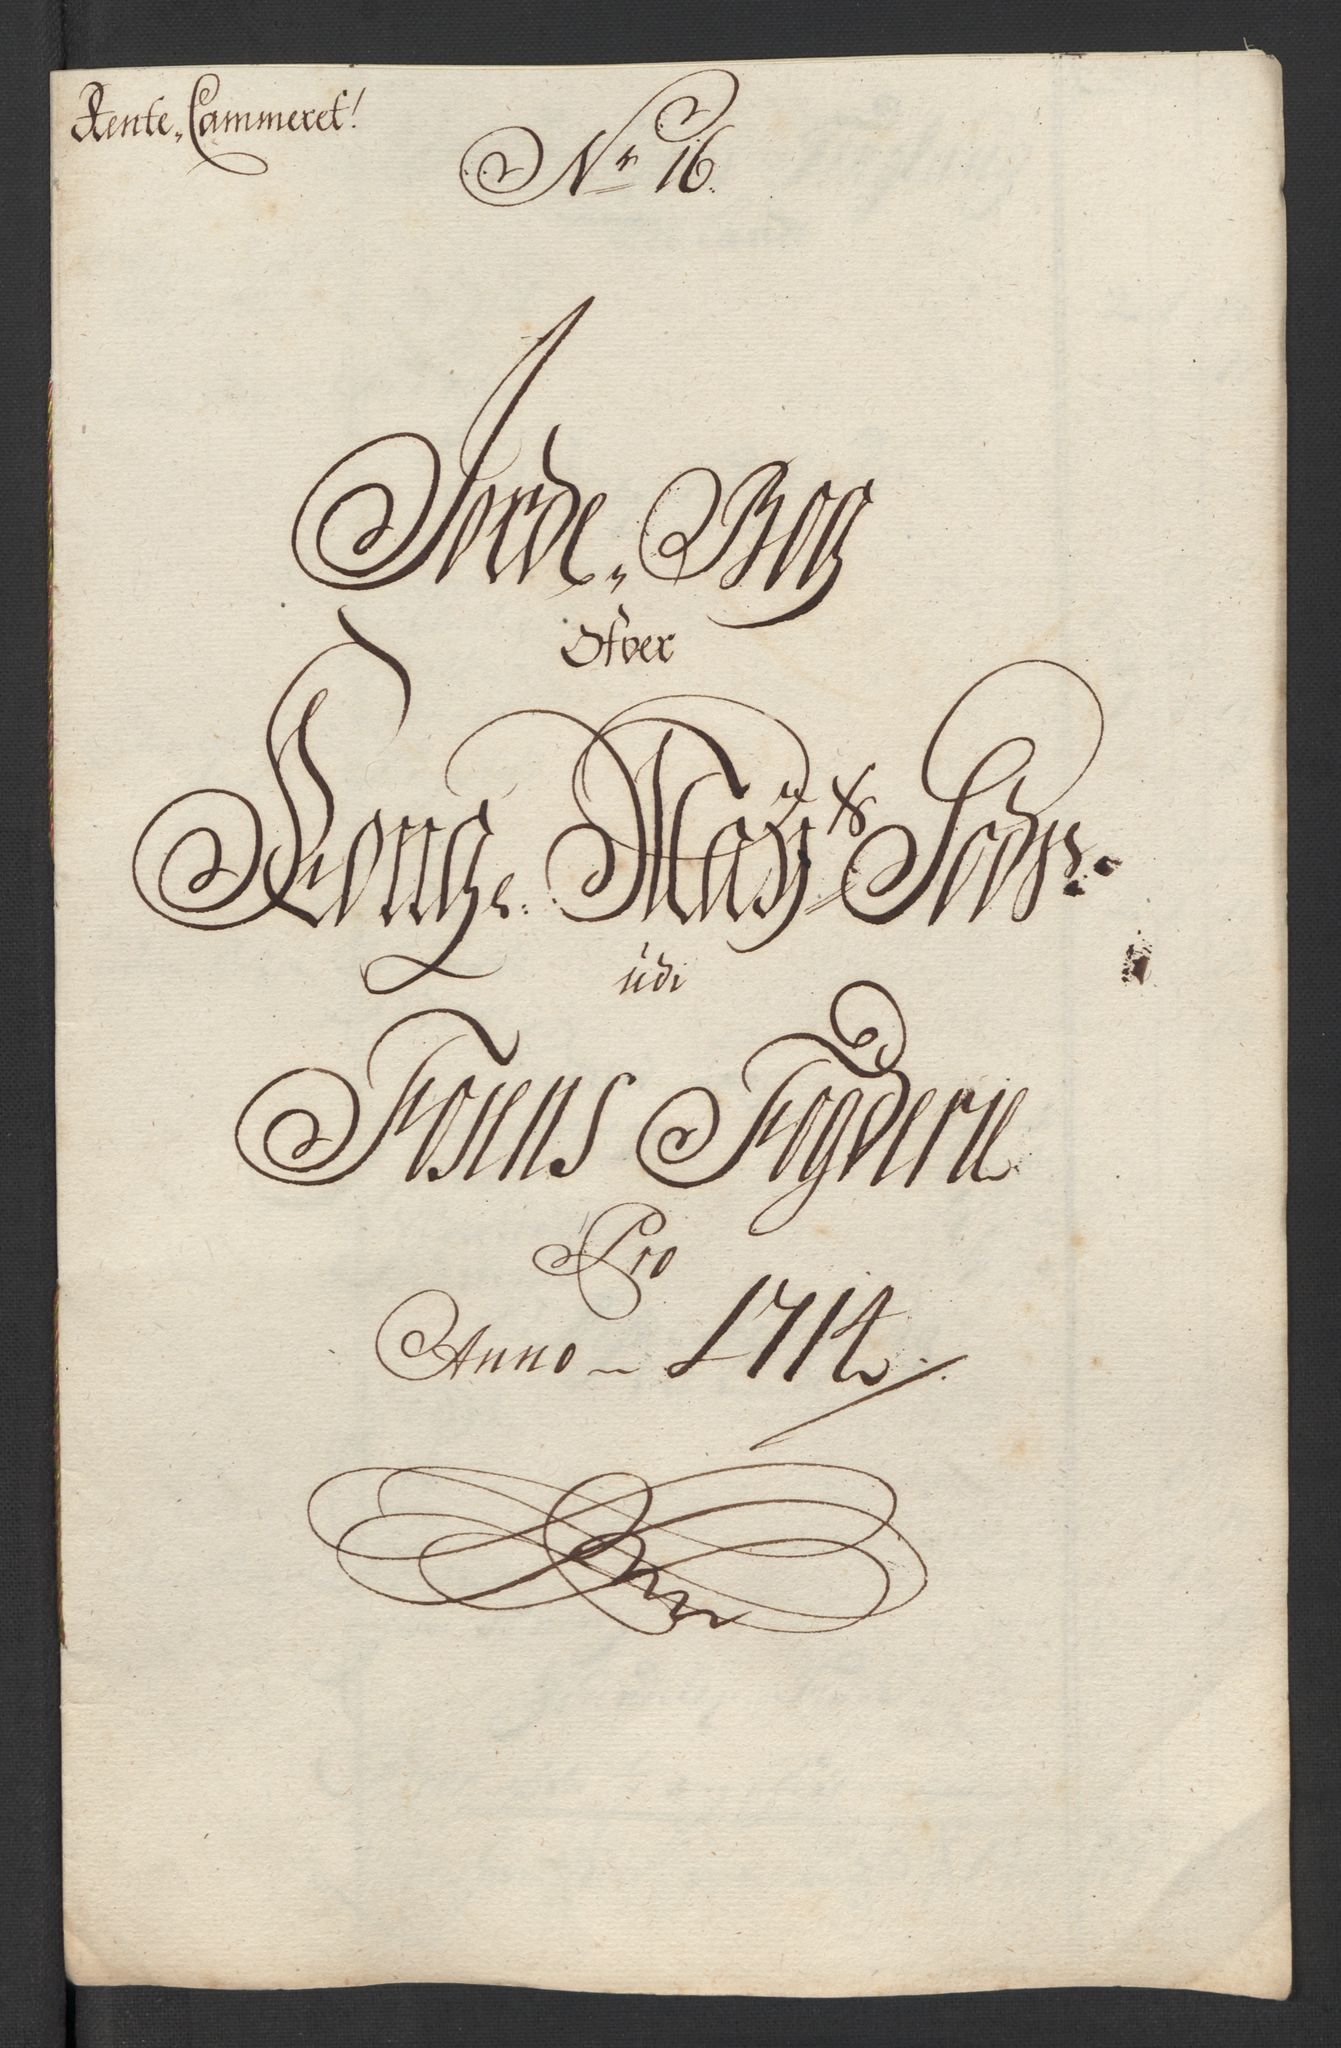 Rente„Cammeret!
Nr 16.
Jorde„Bog
Ofver
Kong. Mayts Jorder
udi
Fosens Fogderie
Pro
Anno 1714